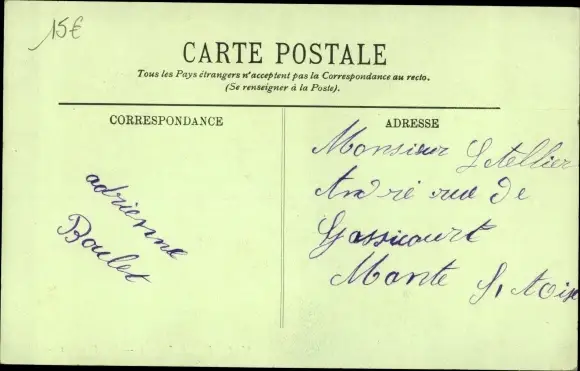 15€
CARTE POSTALE
Tous les Pays étrangers n'acceptent pas la Correspondance au recto.
(Se renseigner à la Poste).
CORRESPONDANCE
ADRESSE
adrienne
Boulet
Monsieur Letellier
André rue de
Gassicourt
Mante S, toise